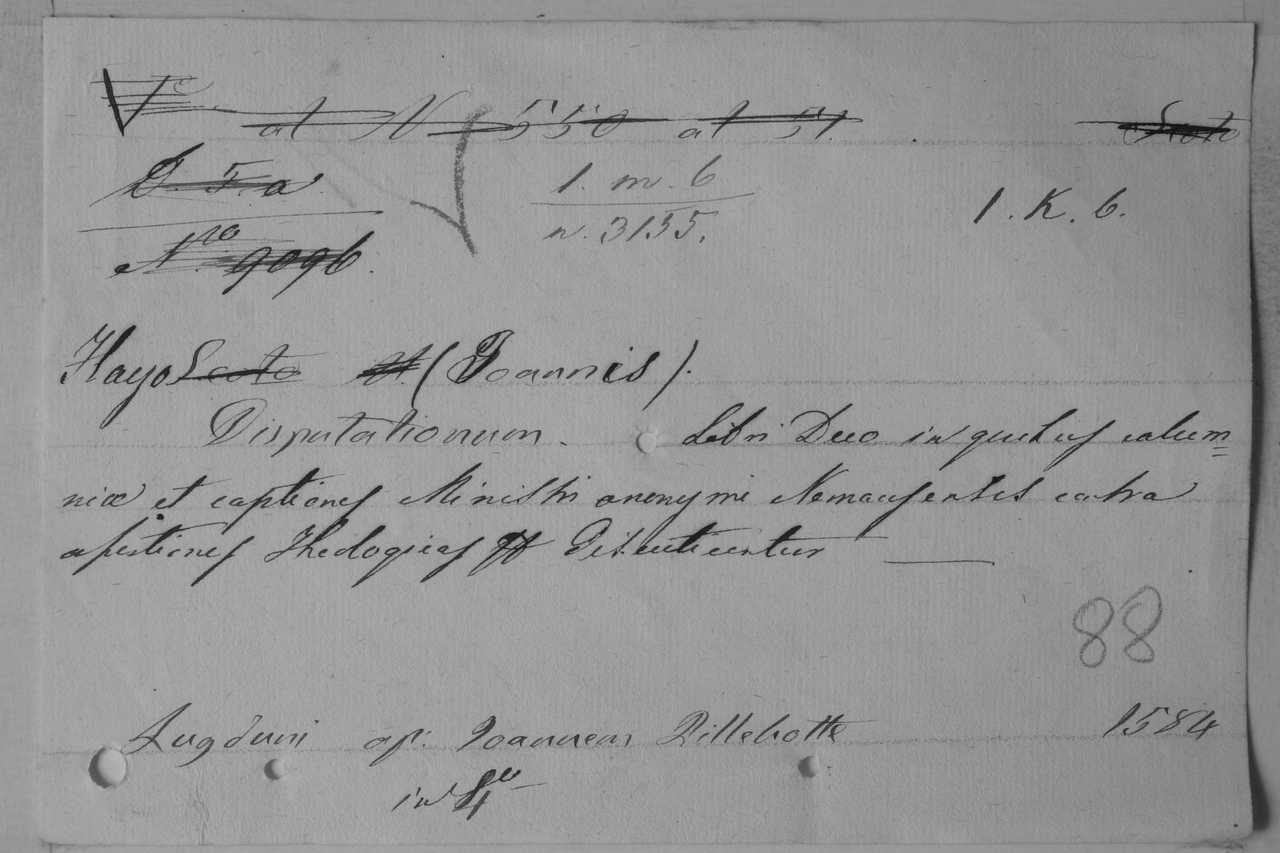 V.e
at N 550 at 51. Scoto
D. 5. a
1. m. 6
n. 3135.
1. K. 6.
N.ro 9096.
Hayo Scoto (Joannis).
Disputationum. Libri Duo in quibus calum=
niæ et captiones Ministri anonymi Nemausensis contra
assertiones Theologicas Discutiuntur
88
Lugduni ap. Joannem Pillehotte 1584
in 4to